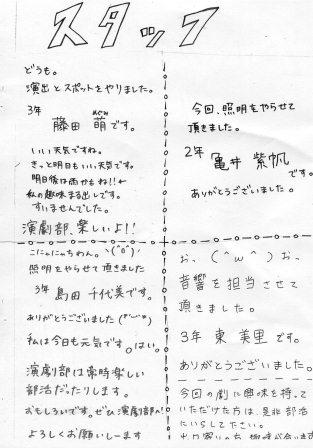 スタッフ
どうも。
演出とスポットをやりました。
3年
藤田 萌です。
めぐみ
いい天気ですね。
きっと明日もいい天気です。
明日後は雨かもね!!←
私の趣味まる出しです。
すいませんでした。
演劇部、楽しいよ!!
今回、照明をやらせて
頂きました。
2年
亀井 紫帆
です。
ありがとうございました。
こにゃにゃちわん。ヽ(^o^)ノ
照明をやらせて頂きました
3年 島田 千代美です。
ありがとうございました
私は今日も元気です。はい。
演劇部は常時楽しい
部活だったりします。
おもしろいです。ぜひ演劇部へ!
よろしくお願いしーます
お、(^ω^)お、
音響を担当させて
頂きました。
3年 東 美里です。
ありがとうございました。
今回の劇に興味を持って
いただけた方は是非部活